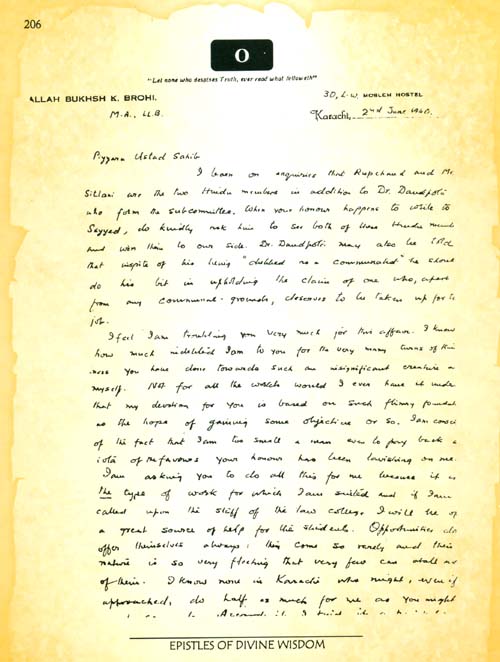 206
O
"Let none who despises Truth, ever read what followeth"
ALLAH BUKHSH K. BROHI.
M.A., LL.B.
3D, L.W. MOSLEM HOSTEL
Karachi, 2nd June 1940.
Piyyara Ustad Sahib
I learn on enquiries that Rupchand and Mr.
are the two Hindu members in addition to Dr. Daudpota
who form the subcommittee. When your honour happens to write to
Sayyed, do kindly ask him to see both of these Hindu memb
and won them to our side. Dr. Daudpota may also be told
that inspite of his being "dubbed as a communalist" he should
do his bit in upholding the claim of one who, apart
from any communal grounds, deserves to be taken up for the
job.
I feel I am troubling you very much for this affair. I know
how much indebted I am to you for the very many turns of kin
ness you have done towards such an insignificant creature as
myself. Not for all the world would I ever have it
that my devotion for you is based on such flimsy foundat
as the hope of gaining some objective or so. I am consci
of the fact that I am too small a man even to pay back a
iota of the favours your honour has been lavishing on me.
I am asking you to do all this for me because it is
the type of work for which I am suited and if I am
called upon the staff of the law college I will be of
a great source of help for the students. Opportunities do
offer themselves always: they come so rarely and their
nature is so very fleeting that very few can avail
of them. I know none in Karachi who might, even if
approached, do half as much for me as you might
EPISTLES OF DIVINE WISDOM